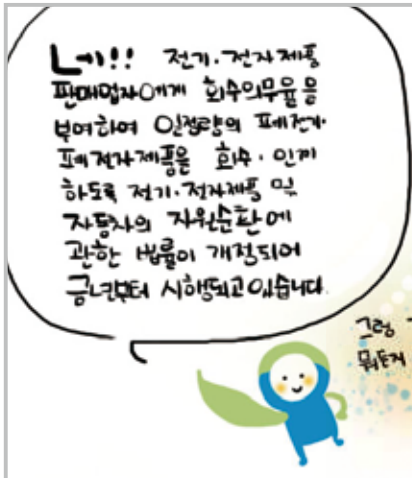 네!! 전기·전자제품
판매업자에게 회수의무율을
부여하여 일정량의 폐전기·
폐전자제품을 회수·인계
하도록 전기·전자제품 및
자동차의 자원순환에
관한 법률이 개정되어
금년부터 시행되고 있습니다.
그럼
뭐든지